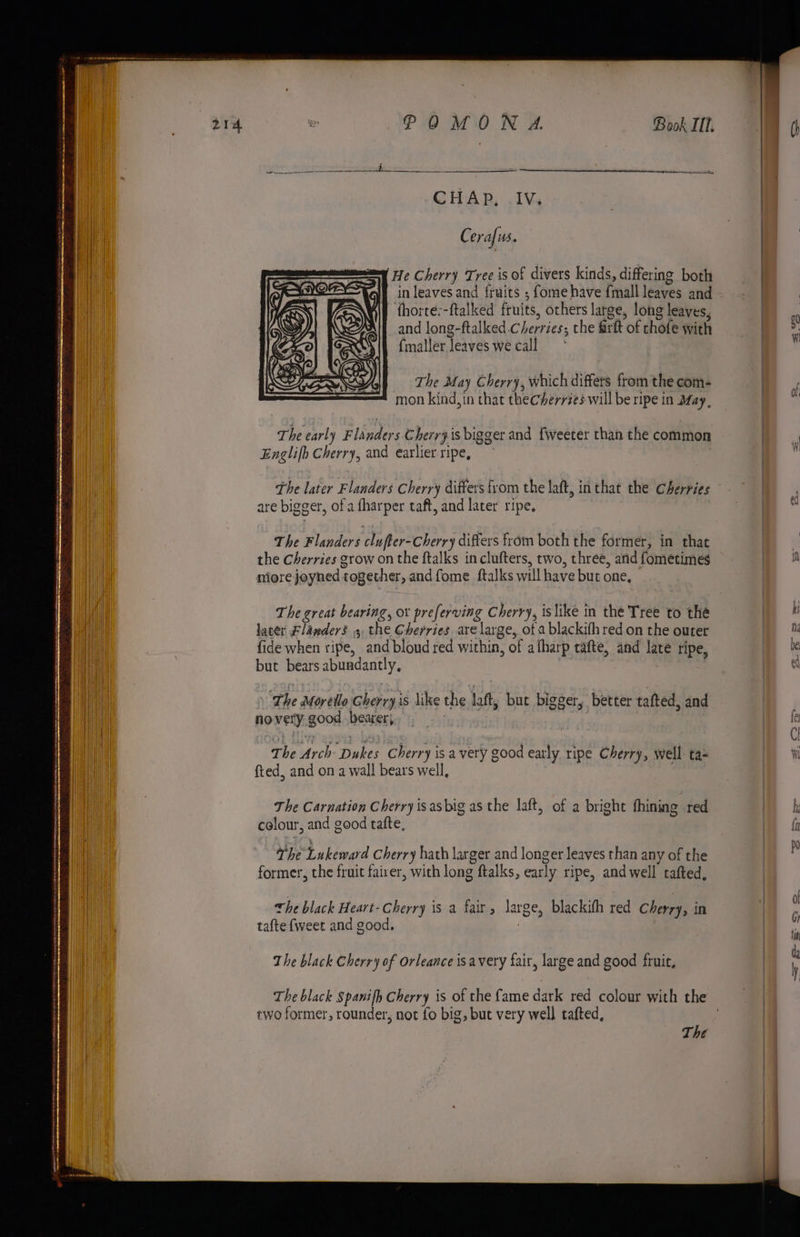 214 POMONA. Book III.
CHAP. IV.
Ceraſus.
THe Cherry Tree is of divers kinds, differing both
in leaves and fruits ; ſome have ſmall leaves and
ſhorter-ſtalked fruits, others large, long leaves,
and long-ſtalked Cherries; the firſt of thoſe with
ſmaller leaves we call
The May Cherry, which differs from the com-
mon kind, in that the Cherries will be ripe in May.
The early Flanders Cherry is bigger and ſweeter than the common
Engliſh Cherry, and earlier ripe,
The later Flanders Cherry differs from the laſt, in that the Cherries
are bigger, of a ſharper taſt, and later ripe.
The Flanders cluſter-Cherry differs from both the former, in that
the Cherries grow on the ſtalks in cluſters, two, three, and ſometimes
more joyned together, and ſome ſtalks will have but one,
The great bearing, or preſerving Cherry, is like in the Tree to the
later Flanders ; the Cherries are large, of a blackiſh red on the outer
ſide when ripe, and bloud red within, of a ſharp taſte, and late ripe,
but bears abundantly.
The Morello Cherry is like the laſt, but bigger, better taſted, and
no very good bearer,
The Arch Dukes Cherry is a very good early ripe Cherry, well ta-
ſted, and on a wall bears well,
The Carnation Cherry is as big as the laſt, of a bright ſhining red
colour, and good taſte,
The Lukeward Cherry hath larger and longer leaves than any of the
former, the fruit fairer, with long ſtalks, early ripe, and well taſted,
The black Heart-Cherry is a fair, large, blackiſh red Cherry, in
taſte ſweet and good.
The black Cherry of Orleance is a very fair, large and good fruit,
The black Spaniſh Cherry is of the ſame dark red colour with the
two former, rounder, not ſo big, but very well taſted,
The